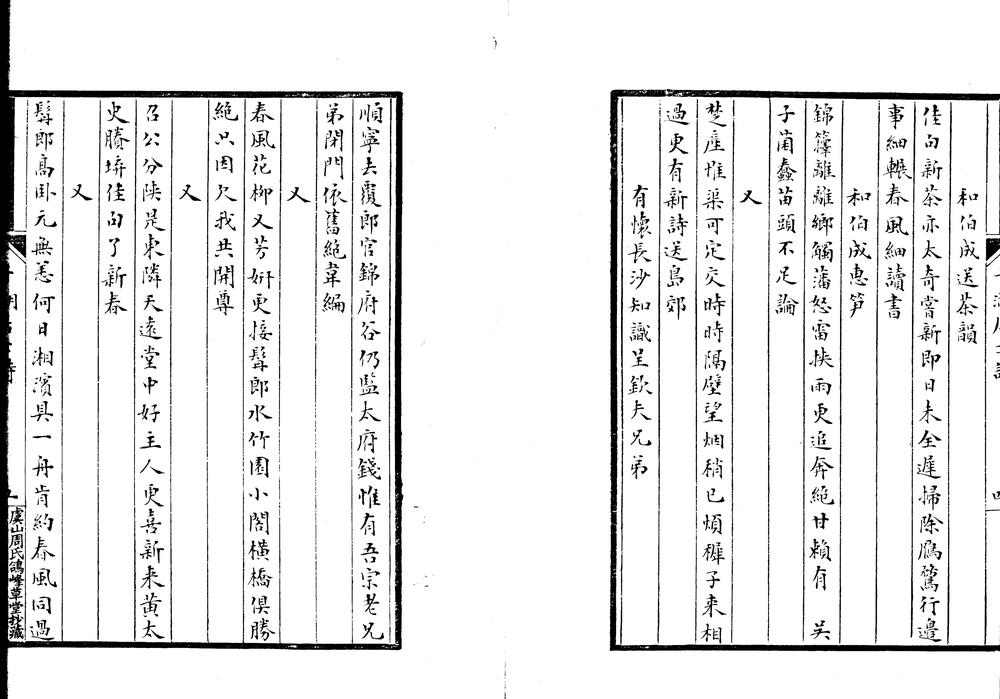 和伯成送茶韻
佳句新茶亦太奇嘗新即日未全遲掃除鴈鶩行邊
事細輾春風細讀書
和伯成惠笋
錦籜離離鄉觸藩怒雷挾雨更追奔絶甘賴有 吴
子蒲蠡苗頭不足論
又
楚產惟渠可定交時時隔壁望烟稍已煩穉子来相
過更有新詩送島郊
有懷長沙知識呈欽夫兄弟
順寧去覆郎官錦府谷仍監太府錢惟有吾宗老兄
弟閉門依舊絶韋編
又
春風花柳又芳妍更接髯郎水竹園小閣橫橋俱勝
絶只因欠我共開尊
又
召公分陝是東隣天遠堂中好主人更喜新来黄太
史賸拚佳句了新春
又
髯郎高卧元無恙何日湘濱具一舟肯約春風同過
虞山周氏鴿峰草堂抄藏